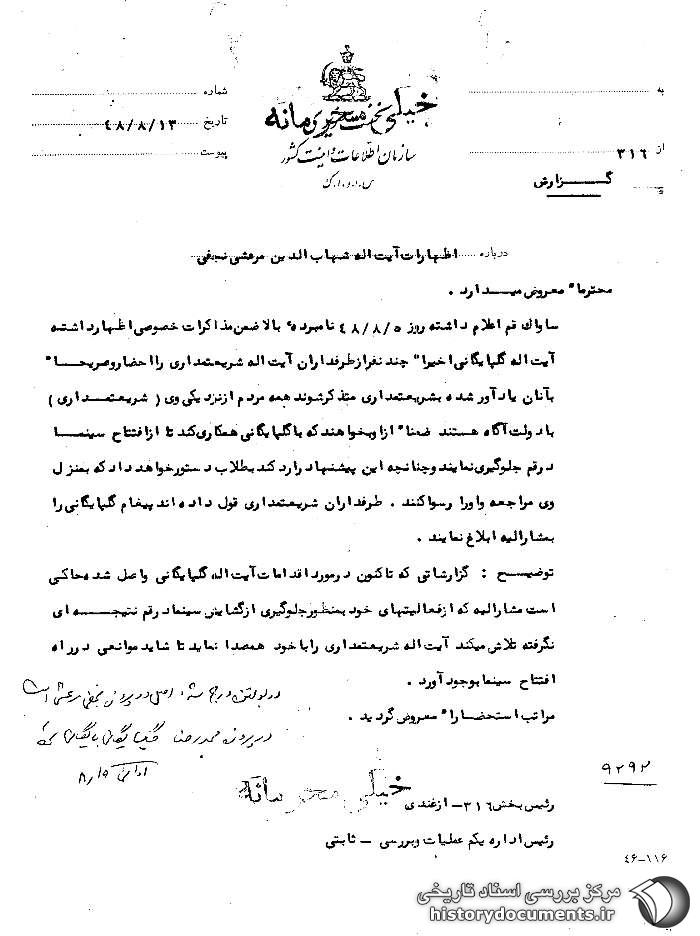 خیلی محرمانه
سازمان اطلاعات و امنیت کشور
س.ا.و.ا.ک
به
شماره
تاریخ ۴۸/۸/۱۳
از ۳۱۶
پیوست
گــــزارش
درباره اظهارات آیت اله شهاب الدین مرعشی نجفی
محترما" معروض میــدارد .
ساواک قم اعلام داشته روز ۴۸/۸/۵ نامبرده بالا ضمن مذاکرات خصوصی اظهار داشته
آیت اله گلپایگانی اخیرا" چند نفر از طرفداران آیت اله شریعتمداری را احضار و صریحــا"
بآنان یادآور شده بشریعتمداری متذکر شوند همه مردم از نزدیکی وی ( شریعتمــداری )
با دولت آگاه هستند ضمنا" از او بخواهند که با گلپایگانی همکاری کند تا از افتتاح سینمــا
در قم جلوگیری نمایند و چنانچه این پیشنهاد را رد کند بطلاب دستور خواهد داد که بمنزل
وی مراجعه و او را رسوا کنند . طرفداران شریعتمداری قول داده اند پیغام گلپایگانی را
بمشارالیه ابلاغ نمایند .
توضیــح : گزارشاتی که تاکنون در مورد اقدامات آیت اله گلپایگانی واصل شده حاکی
است مشارالیه که از فعالیتهای خود بمنظور جلوگیری از گشایش سینما در قم نتیجــه ای
نگرفته تلاش میکند آیت اله شریعتمداری را با خود همصدا نماید تا شاید موانعی در راه
افتتاح سینما بوجود آورد .
مراتب استحضارا" معروض گردید .
در بولتن درج شد اصل در پرونده نجفی مرعشی است
در پرونده محمدرضا گلپایگانی بایگانی شود
۹۲۹۲
خیلی محرمانه
رئیس بخش ۳۱۶ - ازغندی
رئیس اداره یکم عملیات و بررسی - ثابتی
۴۶-۱۱۶
مرکز بررسی اسناد تاریخی
historydocuments.ir